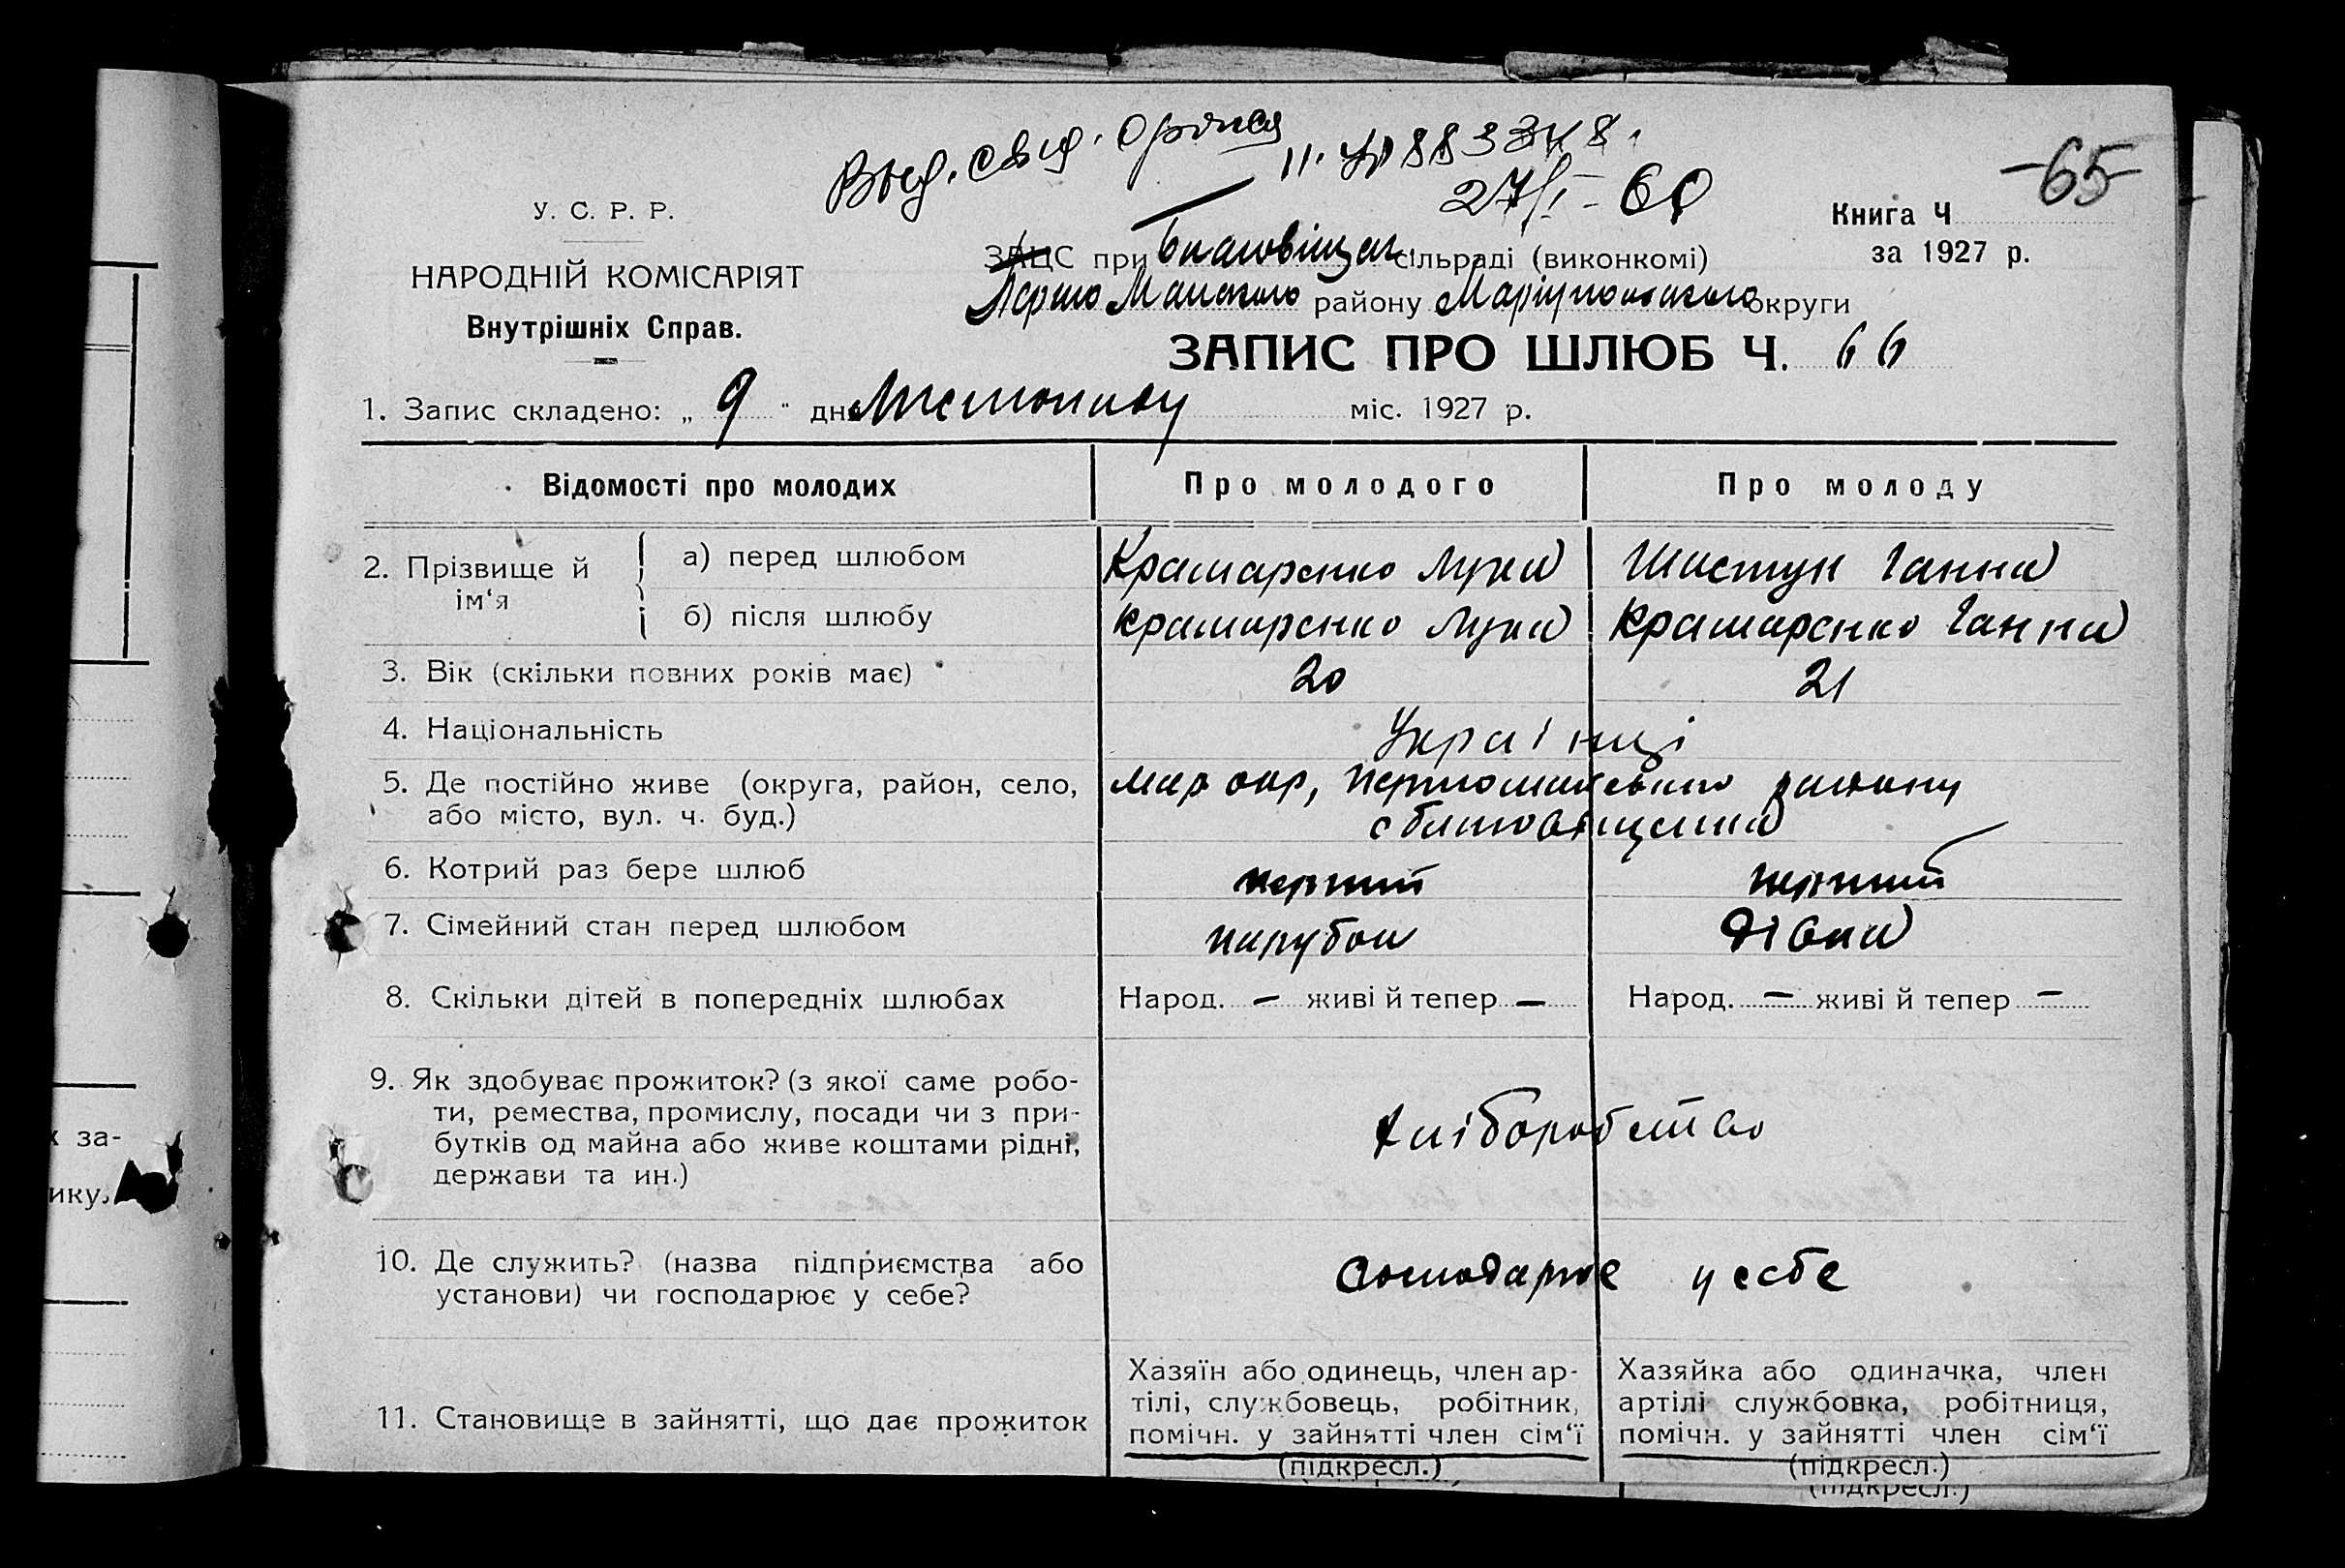 Выд. свид. о
-65-
27/I-60
У. С. Р. Р.
Книга Ч
НАРОДНІЙ КОМІСАРІЯТ
ЗАЦС при Благовіщен. сільраді (виконкомі)
за 1927 р.
Внутрішніх Справ.
Першо Майського району Маріупольського округи
ЗАПИС ПРО ШЛЮБ Ч. 66
1. Запис складено: „ 9 " дня Листопаду міс. 1927 р.
Відомості про молодих
Про молодого
Про молоду
2. Прізвище й ім‘я
а) перед шлюбом
Крамаренко Лука
Шастун Ганна
б) після шлюбу
Крамаренко Лука
Крамаренко Ганна
3. Вік (скільки повних років має)
20
21
4. Національність
Українці
5. Де постійно живе (округа, район, село,
або місто, вул. ч. буд.)
Мар окр, Першомайського району
с благовіщенка
6. Котрий раз бере шлюб
перший
перший
7. Сімейний стан перед шлюбом
парубок
дівка
8. Скільки дітей в попередніх шлюбах
Народ. — живі й тепер —
Народ. — живі й тепер —
9. Як здобуває прожиток? (з якої саме робо-
ти, ремества, промислу, посади чи з при-
бутків од майна або живе коштами рідні,
держави та ин.)
хліборобство
10. Де служить? (назва підприємства або
установи) чи господарює у себе?
господарює у себе
11. Становище в зайнятті, що дає прожиток
Хазяїн або одинець, член ар-
тілі, службовець, робітник,
помічн. у зайнятті член сім‘ї
(підкресл.)
Хазяйка або одиначка, член
артілі службовка, робітниця,
помічн. у зайнятті член сім‘ї
(підкресл.)
(підкресл.)
х за-
ику.